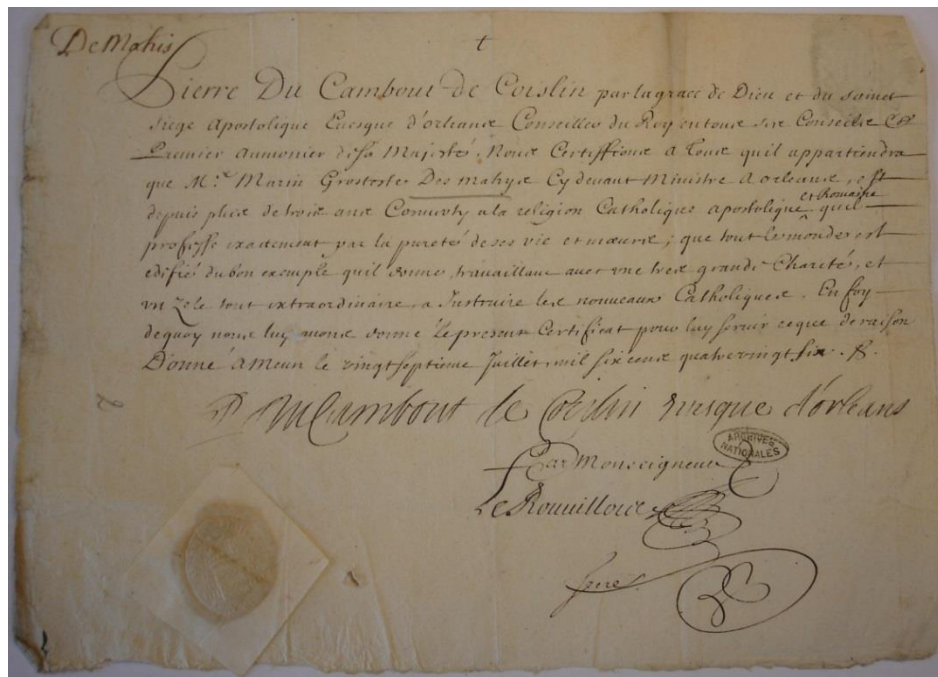 De Mahis
†
Pierre Du Cambout de Coislin par la grace de Dieu et du sainct
siege apostolique Euesque d'orleans Conseiller du Roy en tous ses Conseils et
Premier aumonier de sa Majesté. Nous Certiffions a tous quil appartiendra
que Mr. Marin Grosteste Des mahys Cy devant Ministre a orleans, est
depuis plus de trois ans Conuerty a la religion Catholique apostolique et Romaine quil
professe exactement par la pureté de ses vie et mœurs; que tout le monde est
edifié du bon exemple quil donne, travaillant avec vne tres grande Charité, et
vn zele tout extraordinaire, a Instruire les nouveaux Catholiques. En foy
dequoy nous luy auons donné le present Certificat pour luy seruir ceque de raison
Donné a Meun le vingt septieme Juillet, mil six cens quatre vingt six.
P. Du Cambout de Coislin evesque d'orleans
ARCHIVES
NATIONALES
Par Monseigneur
2